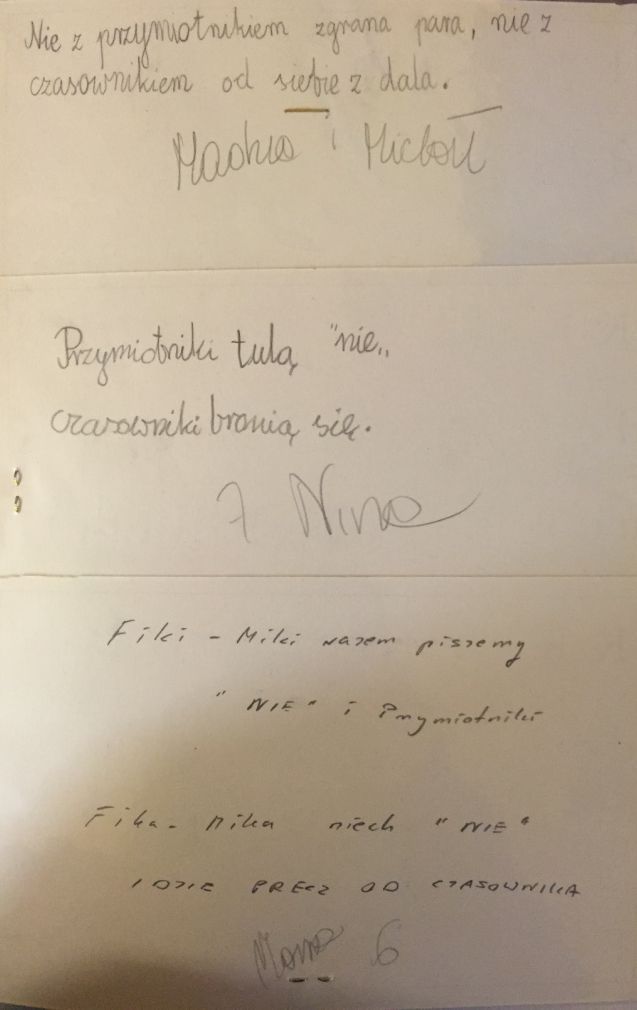 Nie z przymiotnikiem zgrana para, nie z
czasownikiem od siebie z dala.
i Michał
Przymiotniki tulą "nie„
czasowniki bronią się.
7 Nina
Fiki - Miki razem piszemy
"NIE" i Przymiotniki
Fika - Mika niech "NIE"
IDZIE PRECZ OD CZASOWNIKA
6